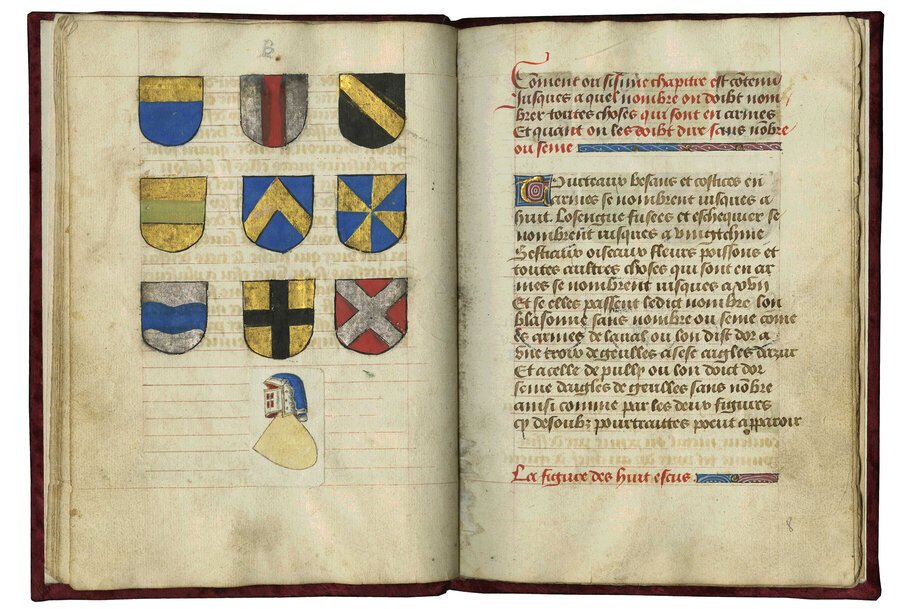 B
Coment ou sisime chapitre est cõtenu
Jusques a quel nombre on doibt nom
brer toutes choses qui sont en armes
Et quant on les doibt dire sans nõbre
ou seme
Tourteaux besans et costices en
armes se nombrent iusques a
huit. Losengue fusees et eschequier se
nombrent iusques a
Bestiaux oiseaux fleurs poissons et
toutes aultres choses qui sont en ar
mes se nombrent iusques a xvij
Et se elles passent ledict nombre lon
blasonne sans nombre ou seme come
es armes de laual ou lon dist dor a
vne croix de geulles a sese aigles dazur
Et a celle de pully ou lon doict dor
seme daigles de geulles sans nõbre
ainsi comme par les deux figures
cy desoubz pourtraittes poent apparoir
La figure des huit escus
8